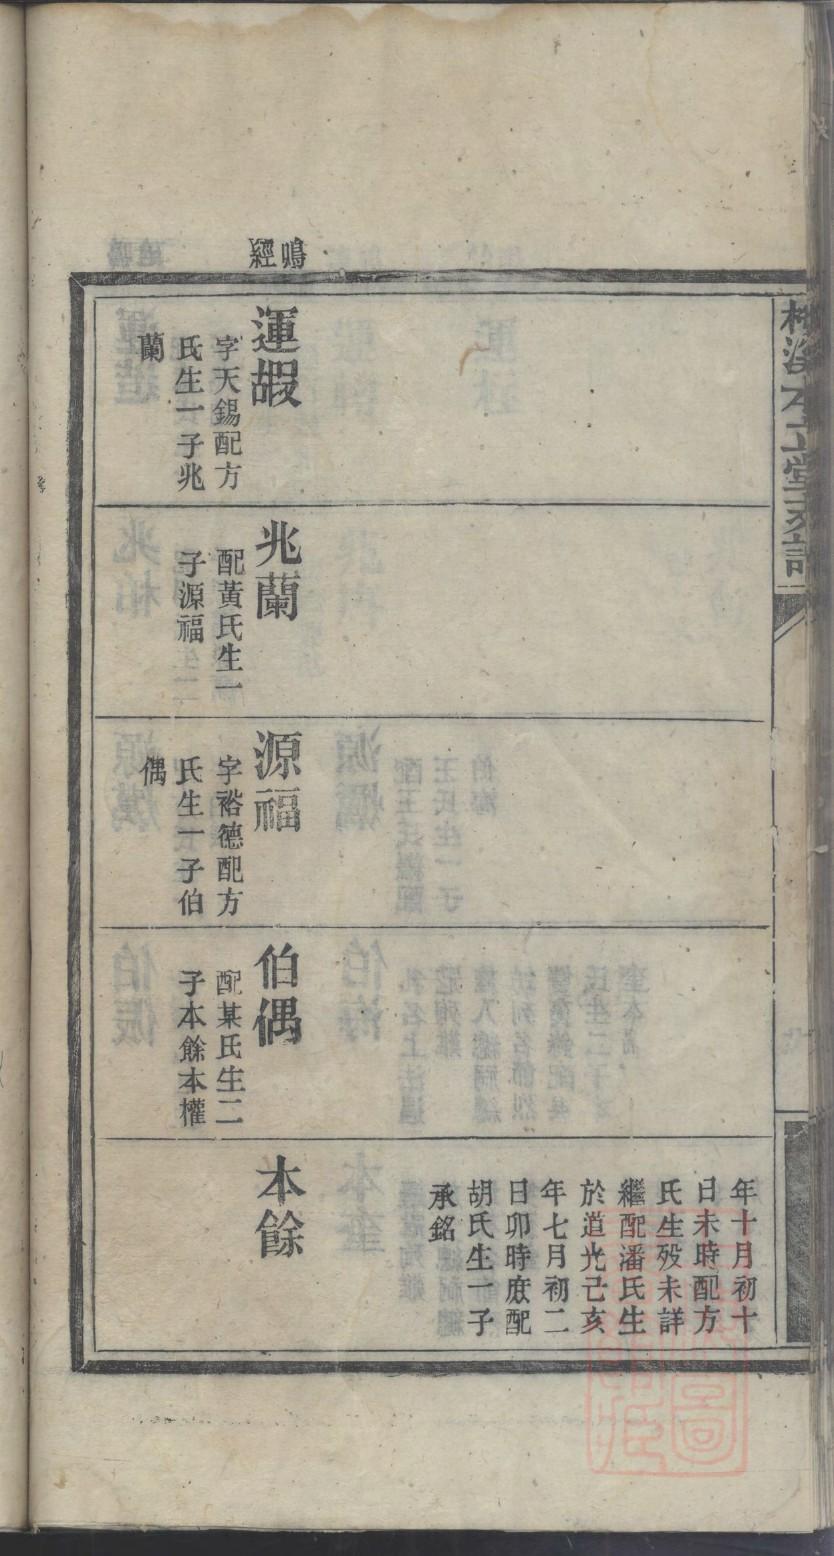 年十月初十
日未時配方
氏生殁未詳
繼配潘氏生
於道光己亥
年七月初二
日卯時庶配
胡氏生一子
承銘
鳴
經
運嘏
字天錫配方
氏生一子兆
蘭
兆蘭
配黃氏生一
子源福
源福
字裕德配方
氏生一子伯
偶
伯偶
配某氏生二
子本餘本權
本餘